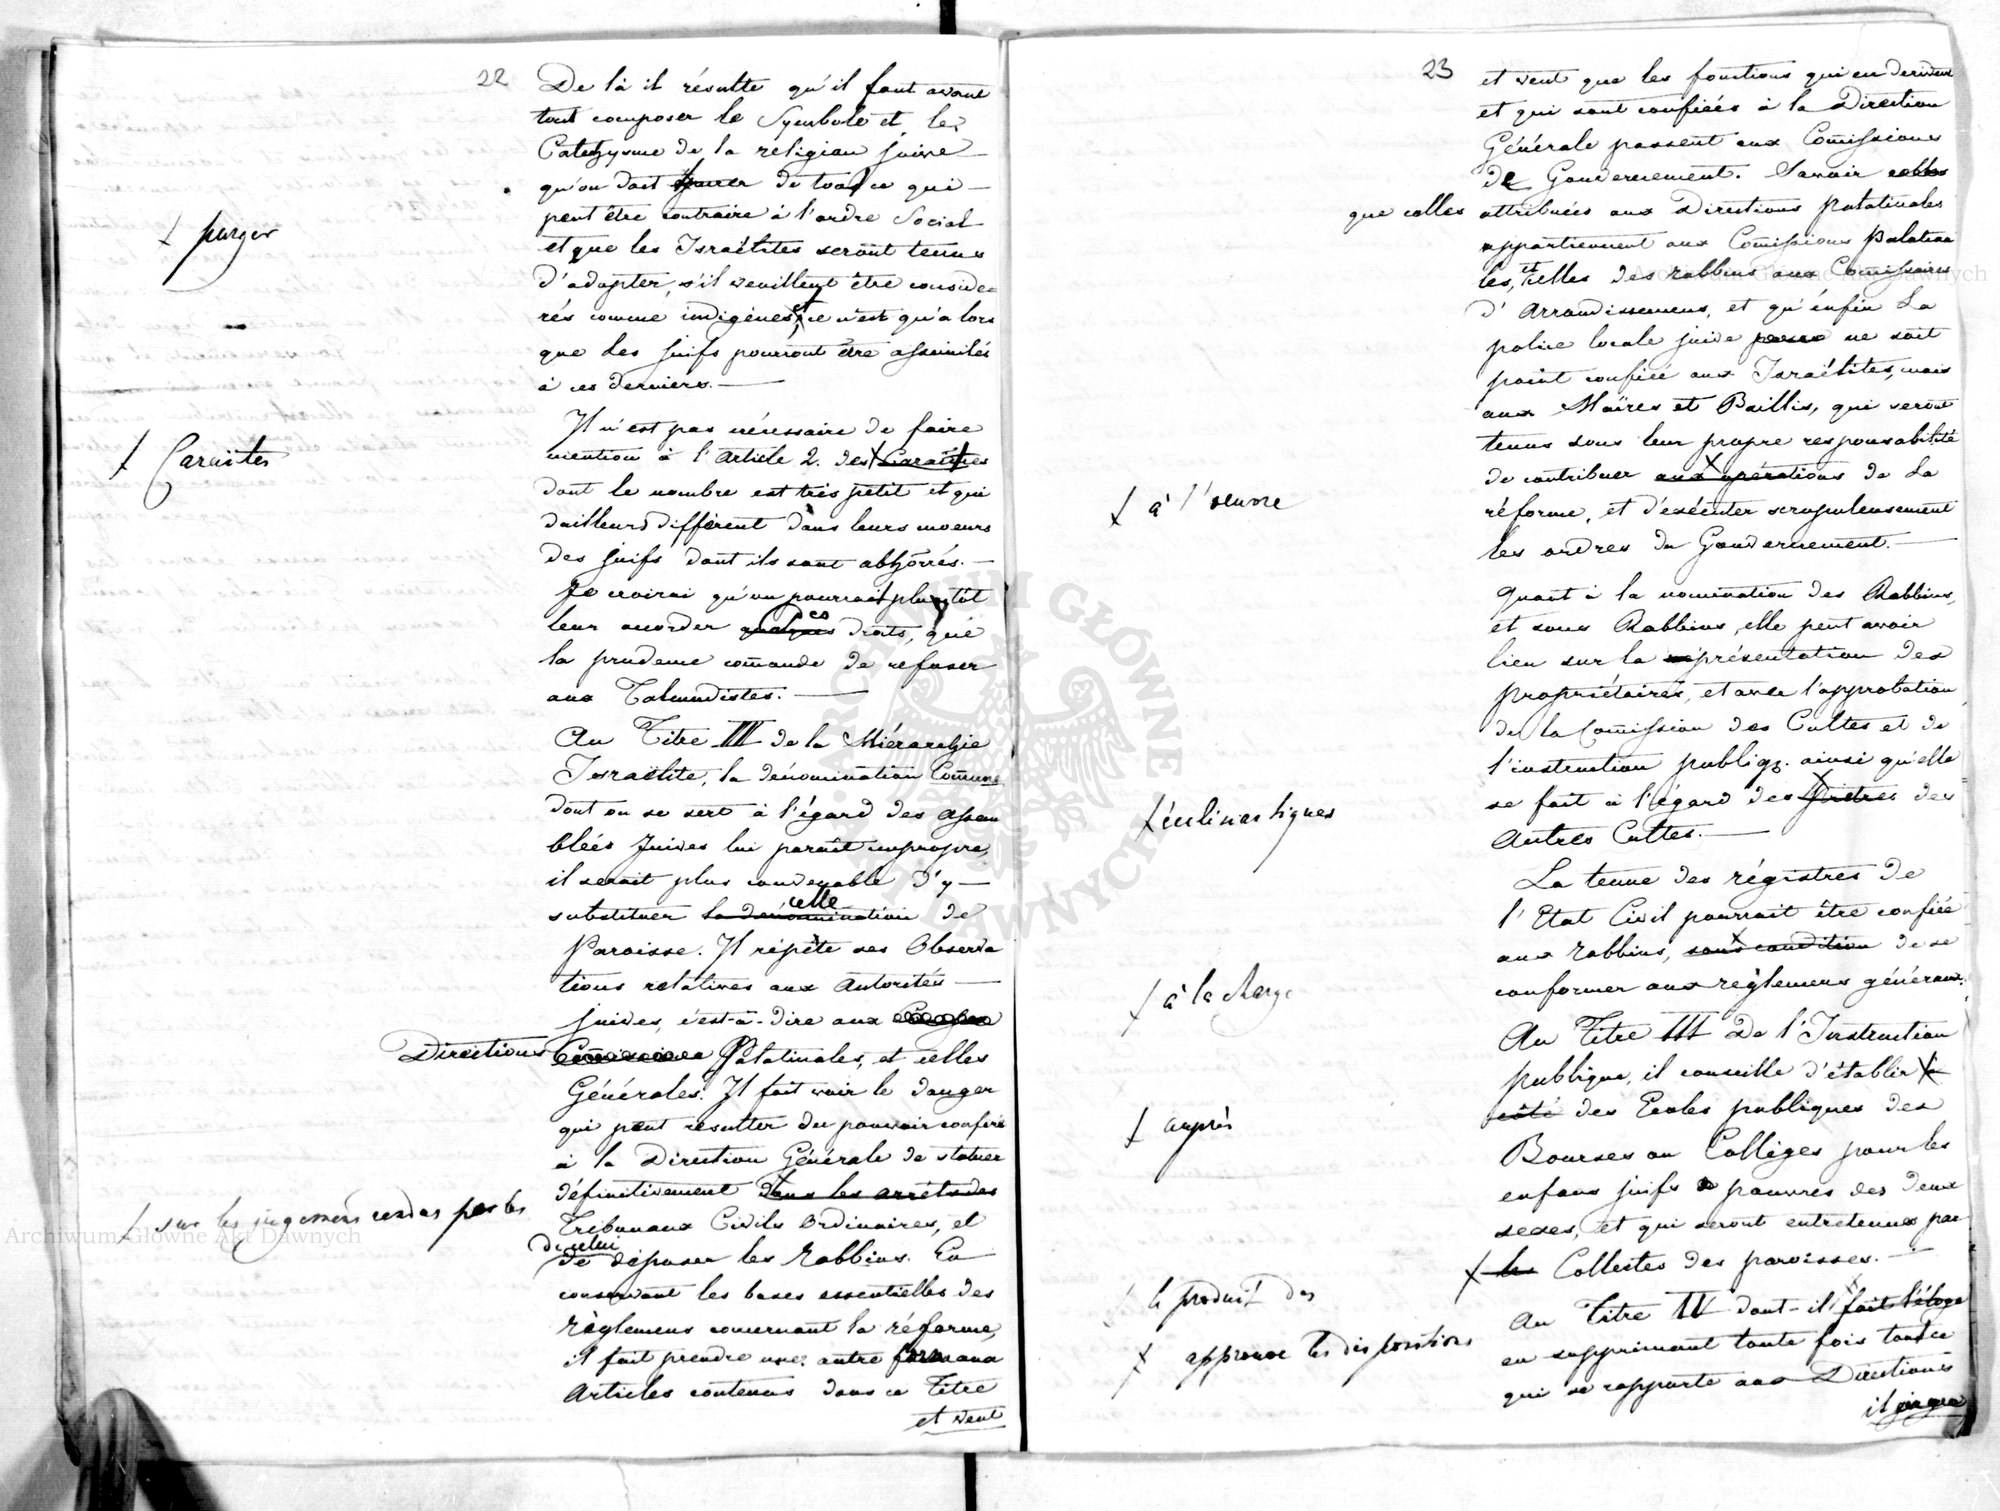 22
De là il résulte qu'il faut avant
tout composer le Symbole et le
Catechysme de la religion juive
qu'on doit de tout ce qui
peut être contraire à l'ordre Social
et que les Israélites seront tenus
d'adopter, s'il veuillent être conside=
rés comme indigènes, et ce n'est qu'alors
que les juifs pourront être assimilés
à ces derniers.
Il n'est pas nécessaire de faire
mention à l'Article 2. des Caraïtes
dont le nombre est très petit et qui
dailleurs différent dans leurs moeurs
des juifs dont ils sont abhorrés.
Je croirai qu'on pourrait plutôt
leur accorder ces droits, que
la prudence comande de refuser
aux Talmudistes.
Au Titre III de la Hiérarchie
Israëlite, la dénomination Comune
dont on se sert à l'égard des assem
blées Juives lui paraît impropre,
il serait plus convenable d'y
substituer la dénomination celle de
Paroisse. Il répète ses Observa
tions relatives aux Autorités
juives, c'est-à-dire aux
Palatinales, et celles
Générales. Il fait voir le danger
qui peut résulter du pouvoir conféré
à la Direction Générale de statuer
définitivement dans les arrêts des
Tribunaux Civils Ordinaires, et
de celui de déposer les Rabbins. En
conservant les bases essentielles des
règlemens concernant la réforme,
il fait prendre une autre forme aux
Articles contenus dans ce Titre
et veut
+ purger
+ Caraïtes
Directions
+ sur les jugemens rendus par les
23
et veut que les fonctions qui en derivent
et qui sont confiées à la Direction
Générale passent aux Comissions
de Gouvernement. Savoir celles
que celles attribuées aux Directions Palatinales
appartiennent aux Comissions Palatina
les, et celles des rabbins aux Comissaires
d'Arrondissemens, et qu'énfin la
police locale juive ne soit
point confiée aux Israélites, mais
aux Maires et Baillis, qui seront
tenus sous leur propre responsabilité
de contribuer aux opérations de la
réforme, et d'exécuter scrupuleusement
les ordres du Gouvernement.
Quant à la nomination des Rabbins,
et sous Rabbins, elle peut avoir
lieu sur la représentation des
propriétaires, et avec l'approbation
de la Comission des Cultes et de
l'instruction publiq. ainsi qu'elle
se fait à l'égard des Prêtres des
Autres Cultes.
La tenue des régistres de
l'Etat Civil pourrait être confiée
aux rabbins, sous condition de se
conformer aux règlemens généraux.
Au Titre III De l'Instruction
publique, il conseille d'établir à
côté des Ecoles publiques des
Bourses ou Collèges pour les
enfans juifs pauvres des deux
sexes, et qui seront entretenus par
les Collectes des paroisses.
Au Titre IV dont-il fait l'éloge
en supprimant toute fois tout ce
qui se rapporte aux Directions
il juge que
+ à l'oeuvre
+ écclesiastiques
+ à la charge
+ après
+ le produit des
+ approuve les dispositions